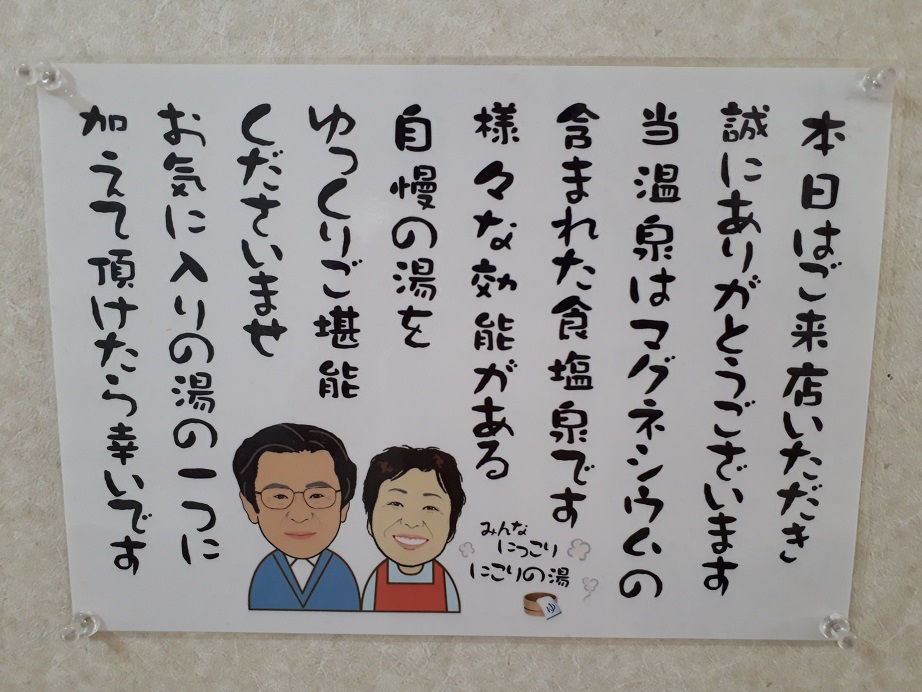 本日はご来店いただき
誠にありがとうございます
当温泉はマグネシウムの
含まれた食塩泉です
様々な効能がある
自慢の湯を
ゆっくりご堪能
くださいませ
お気に入りの湯の一つに
加えて頂けたら幸いです
みんな
にっこり
にこりの湯
ゆ